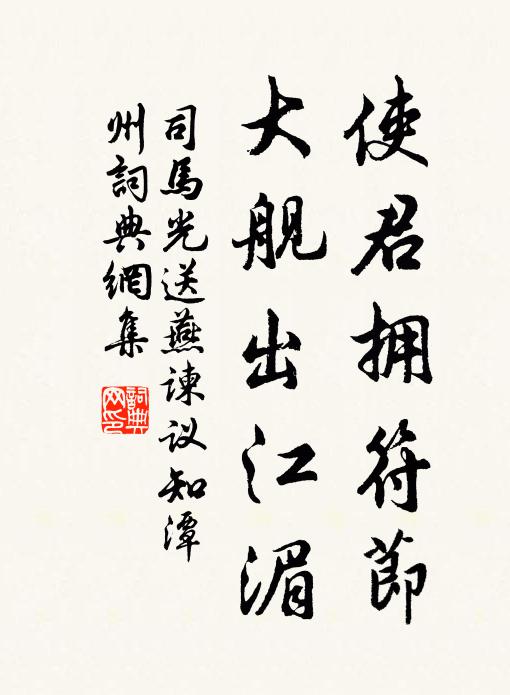 使君拥符莭
大舰出江湄
司馬光送燕諫议知潭
州詞典網集
詞典网印